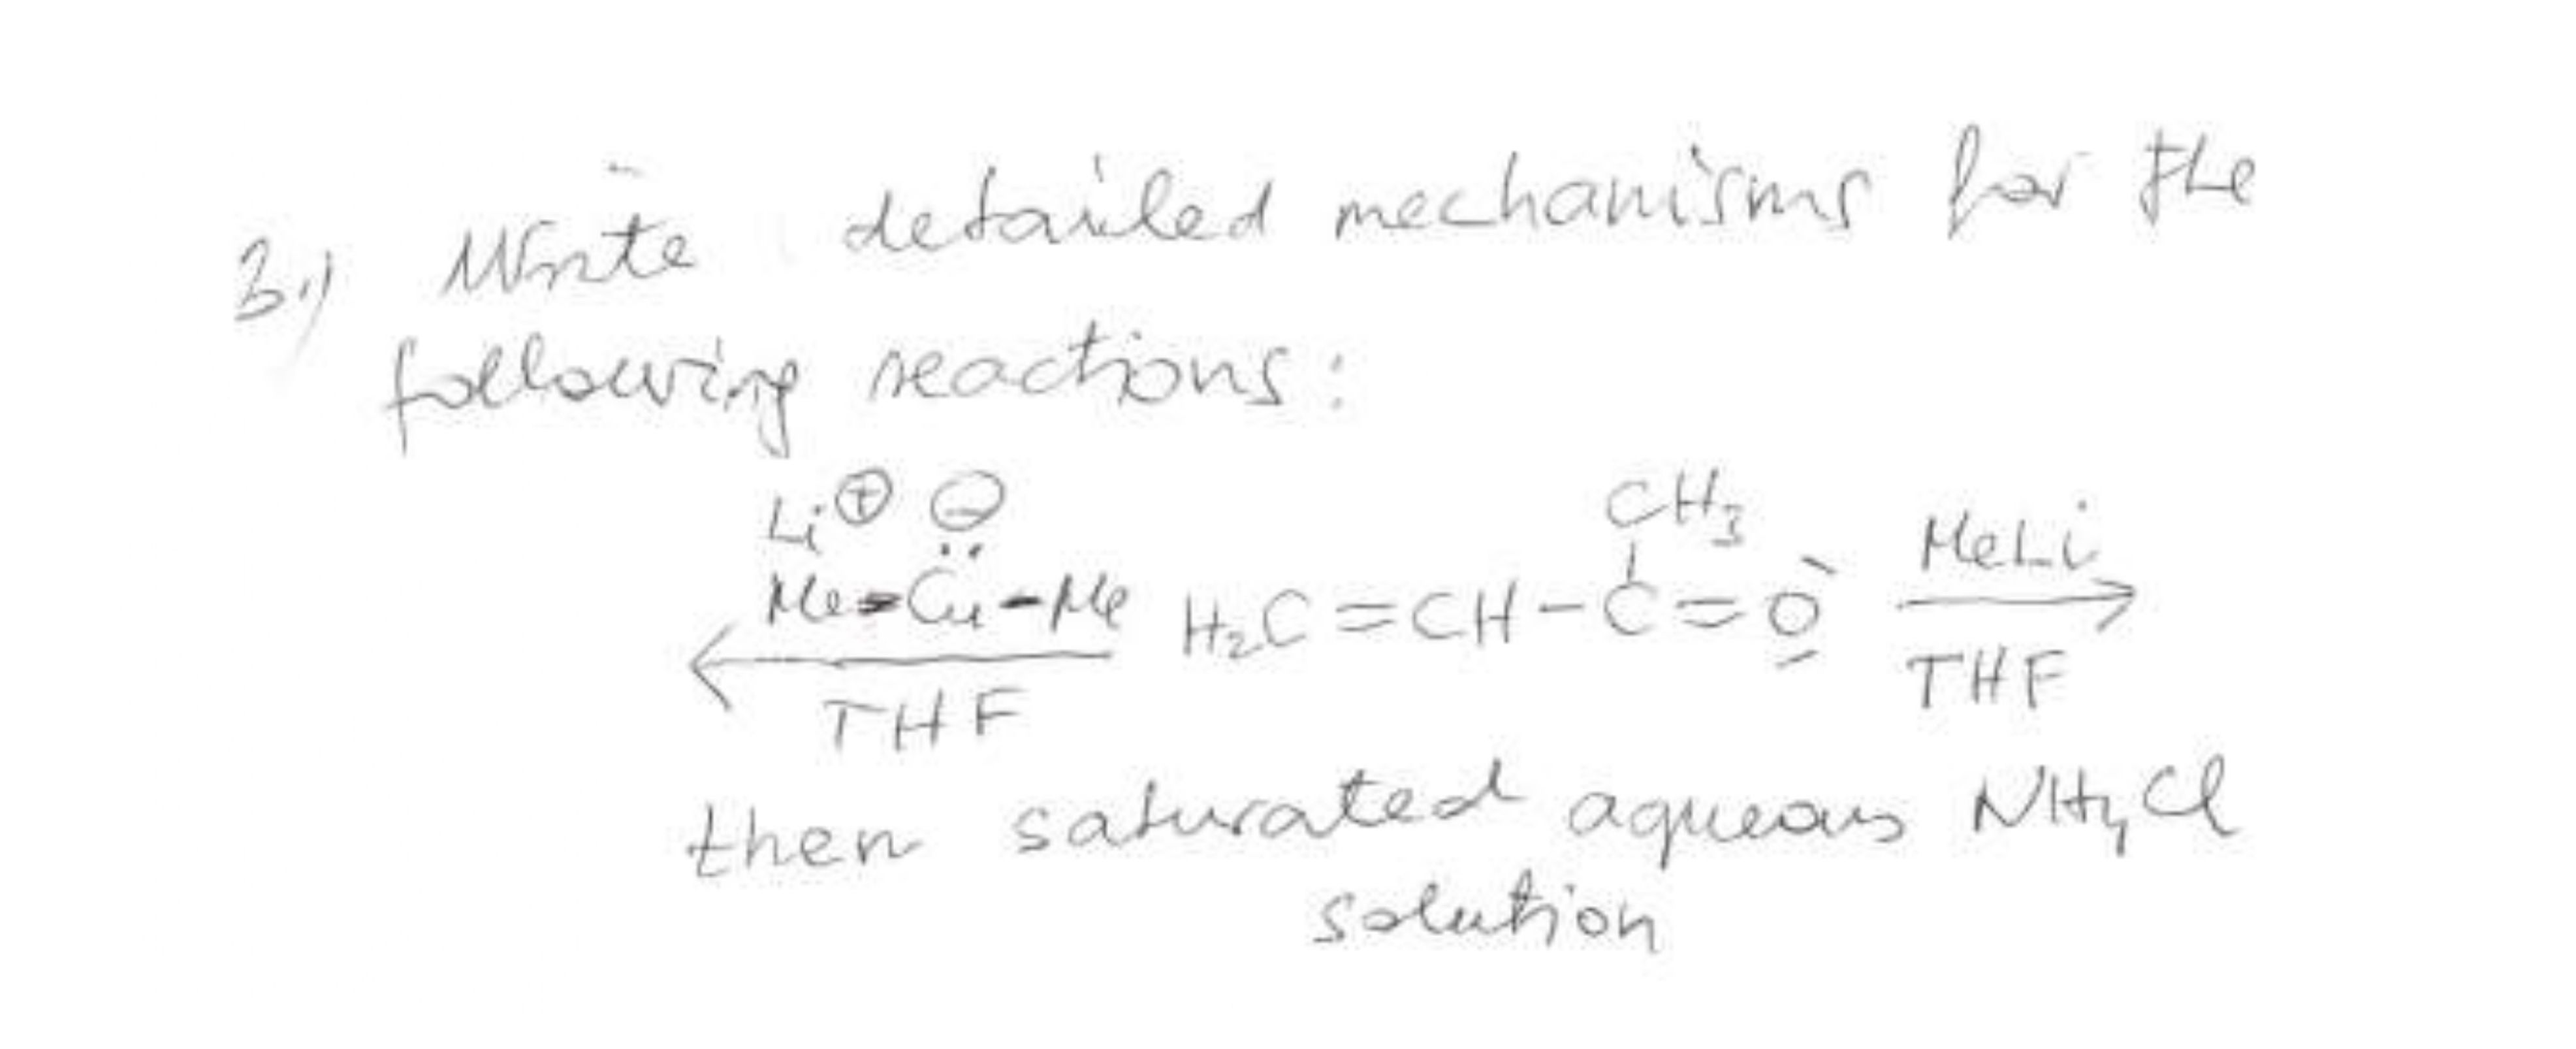 3.) Write detailed mechanisms for the
following reactions:
Li⊕ ⊖
Me-C̈u-Me
THF
CH₃
H₂C=CH-C=O
MeLi
THF
then saturated aqueous NH₄Cl
solution